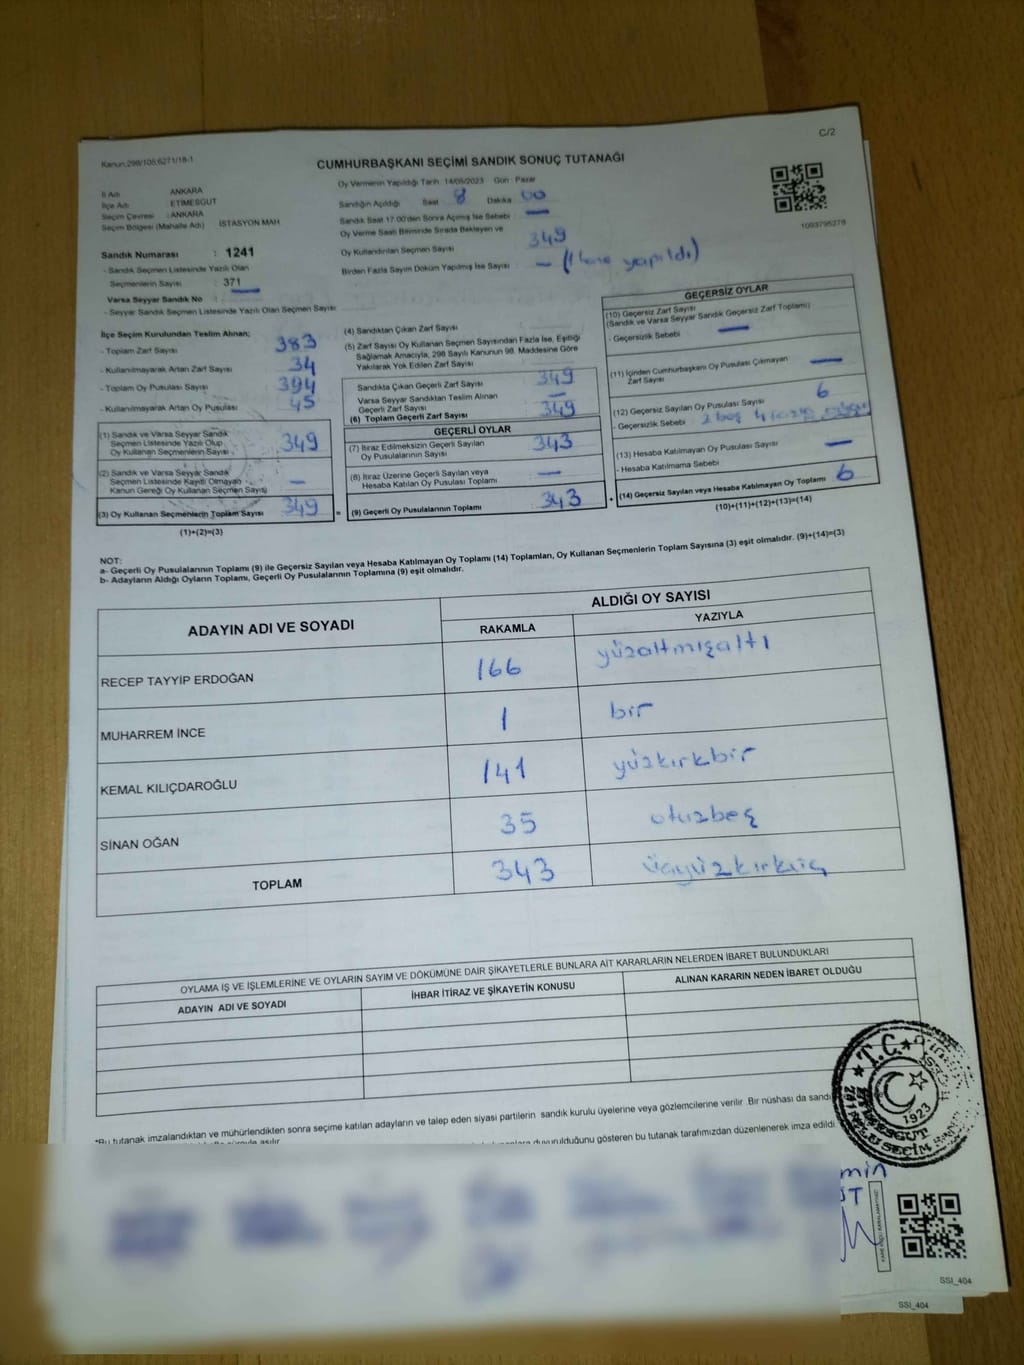 C/2
Kanun:298/105;6271/18-1
CUMHURBAŞKANI SEÇİMİ SANDIK SONUÇ TUTANAĞI
İl Adı ANKARA
İlçe Adı : ETİMESGUT
Seçim Çevresi : ANKARA
Seçim Bölgesi (Mahalle Adı) İSTASYON MAH
Sandık Numarası : 1241
- Sandık Seçmen Listesinde Yazılı Olan
Seçmenlerin Sayısı : 371
Varsa Seyyar Sandık No :
- Seyyar Sandık Seçmen Listesinde Yazılı Olan Seçmen Sayısı :
Oy Vermenin Yapıldığı Tarih 14/05/2023 Gün : Pazar
Sandığın Açıldığı Saat 8 Dakika 00
Sandık Saat 17:00'den Sonra Açılmış İse Sebebi : —
Oy Verme Saati Bitiminde Sırada Bekleyen ve
Oy Kullandırılan Seçmen Sayısı 349
Birden Fazla Sayım Döküm Yapılmış İse Sayısı : — (1 kere yapıldı)
1093795278
İlçe Seçim Kurulundan Teslim Alınan;
- Toplam Zarf Sayısı 383
- Kullanılmayarak Artan Zarf Sayısı 34
- Toplam Oy Pusulası Sayısı 394
- Kullanılmayarak Artan Oy Pusulası 45
(1) Sandık ve Varsa Seyyar Sandık
Seçmen Listesinde Yazılı Olup
Oy Kullanan Seçmenlerin Sayısı 349
(2) Sandık ve Varsa Seyyar Sandık
Seçmen Listesinde Kayıtlı Olmayan
Kanun Gereği Oy Kullanan Seçmen Sayısı —
(3) Oy Kullanan Seçmenlerin Toplam Sayısı 349 =
(1)+(2)=(3)
(4) Sandıktan Çıkan Zarf Sayısı
(5) Zarf Sayısı Oy Kullanan Seçmen Sayısından Fazla İse, Eşitliği
Sağlamak Amacıyla, 298 Sayılı Kanunun 98. Maddesine Göre
Yakılarak Yok Edilen Zarf Sayısı
Sandıkta Çıkan Geçerli Zarf Sayısı 349
Varsa Seyyar Sandıktan Teslim Alınan
Geçerli Zarf Sayısı —
(6) Toplam Geçerli Zarf Sayısı 349
GEÇERLİ OYLAR
(7) İtiraz Edilmeksizin Geçerli Sayılan
Oy Pusulalarının Sayısı 343
(8) İtiraz Üzerine Geçerli Sayılan veya
Hesaba Katılan Oy Pusulası Toplamı —
(9) Geçerli Oy Pusulalarının Toplamı 343 +
GEÇERSİZ OYLAR
(10) Geçersiz Zarf Sayısı
(Sandık ve Varsa Seyyar Sandık Geçersiz Zarf Toplamı)
- Geçersizlik Sebebi —
(11) İçinden Cumhurbaşkanı Oy Pusulası Çıkmayan
Zarf Sayısı —
(12) Geçersiz Sayılan Oy Pusulası Sayısı 6
- Geçersizlik Sebebi 2 boş 4
(13) Hesaba Katılmayan Oy Pusulası Sayısı —
- Hesaba Katılmama Sebebi
(14) Geçersiz Sayılan veya Hesaba Katılmayan Oy Toplamı 6
(10)+(11)+(12)+(13)=(14)
NOT:
a- Geçerli Oy Pusulalarının Toplamı (9) ile Geçersiz Sayılan veya Hesaba Katılmayan Oy Toplamı (14) Toplamları, Oy Kullanan Seçmenlerin Toplam Sayısına (3) eşit olmalıdır. (9)+(14)=(3)
b- Adayların Aldığı Oyların Toplamı, Geçerli Oy Pusulalarının Toplamına (9) eşit olmalıdır.
ADAYIN ADI VE SOYADI ALDIĞI OY SAYISI
RAKAMLA YAZIYLA
RECEP TAYYİP ERDOĞAN 166 yüzaltmışaltı
MUHARREM İNCE 1 bir
KEMAL KILIÇDAROĞLU 141 yüzkırkbir
SİNAN OĞAN 35 otuzbeş
TOPLAM 343 üçyüzkırküç
OYLAMA İŞ VE İŞLEMLERİNE VE OYLARIN SAYIM VE DÖKÜMÜNE DAİR ŞİKAYETLERLE BUNLARA AİT KARARLARIN NELERDEN İBARET BULUNDUKLARI
ADAYIN ADI VE SOYADI İHBAR İTİRAZ VE ŞİKAYETİN KONUSU ALINAN KARARIN NEDEN İBARET OLDUĞU
*Bu tutanak imzalandıktan ve mühürlendikten sonra seçime katılan adayların ve talep eden siyasi partilerin sandık kurulu üyelerine veya gözlemcilerine verilir. Bir nüshası da sandı
duyurulduğunu gösteren bu tutanak tarafımızdan düzenlenerek imza edildi.
T.C.
1923
ETİMESGUT
SEÇİM
SSI_404
SSI_404